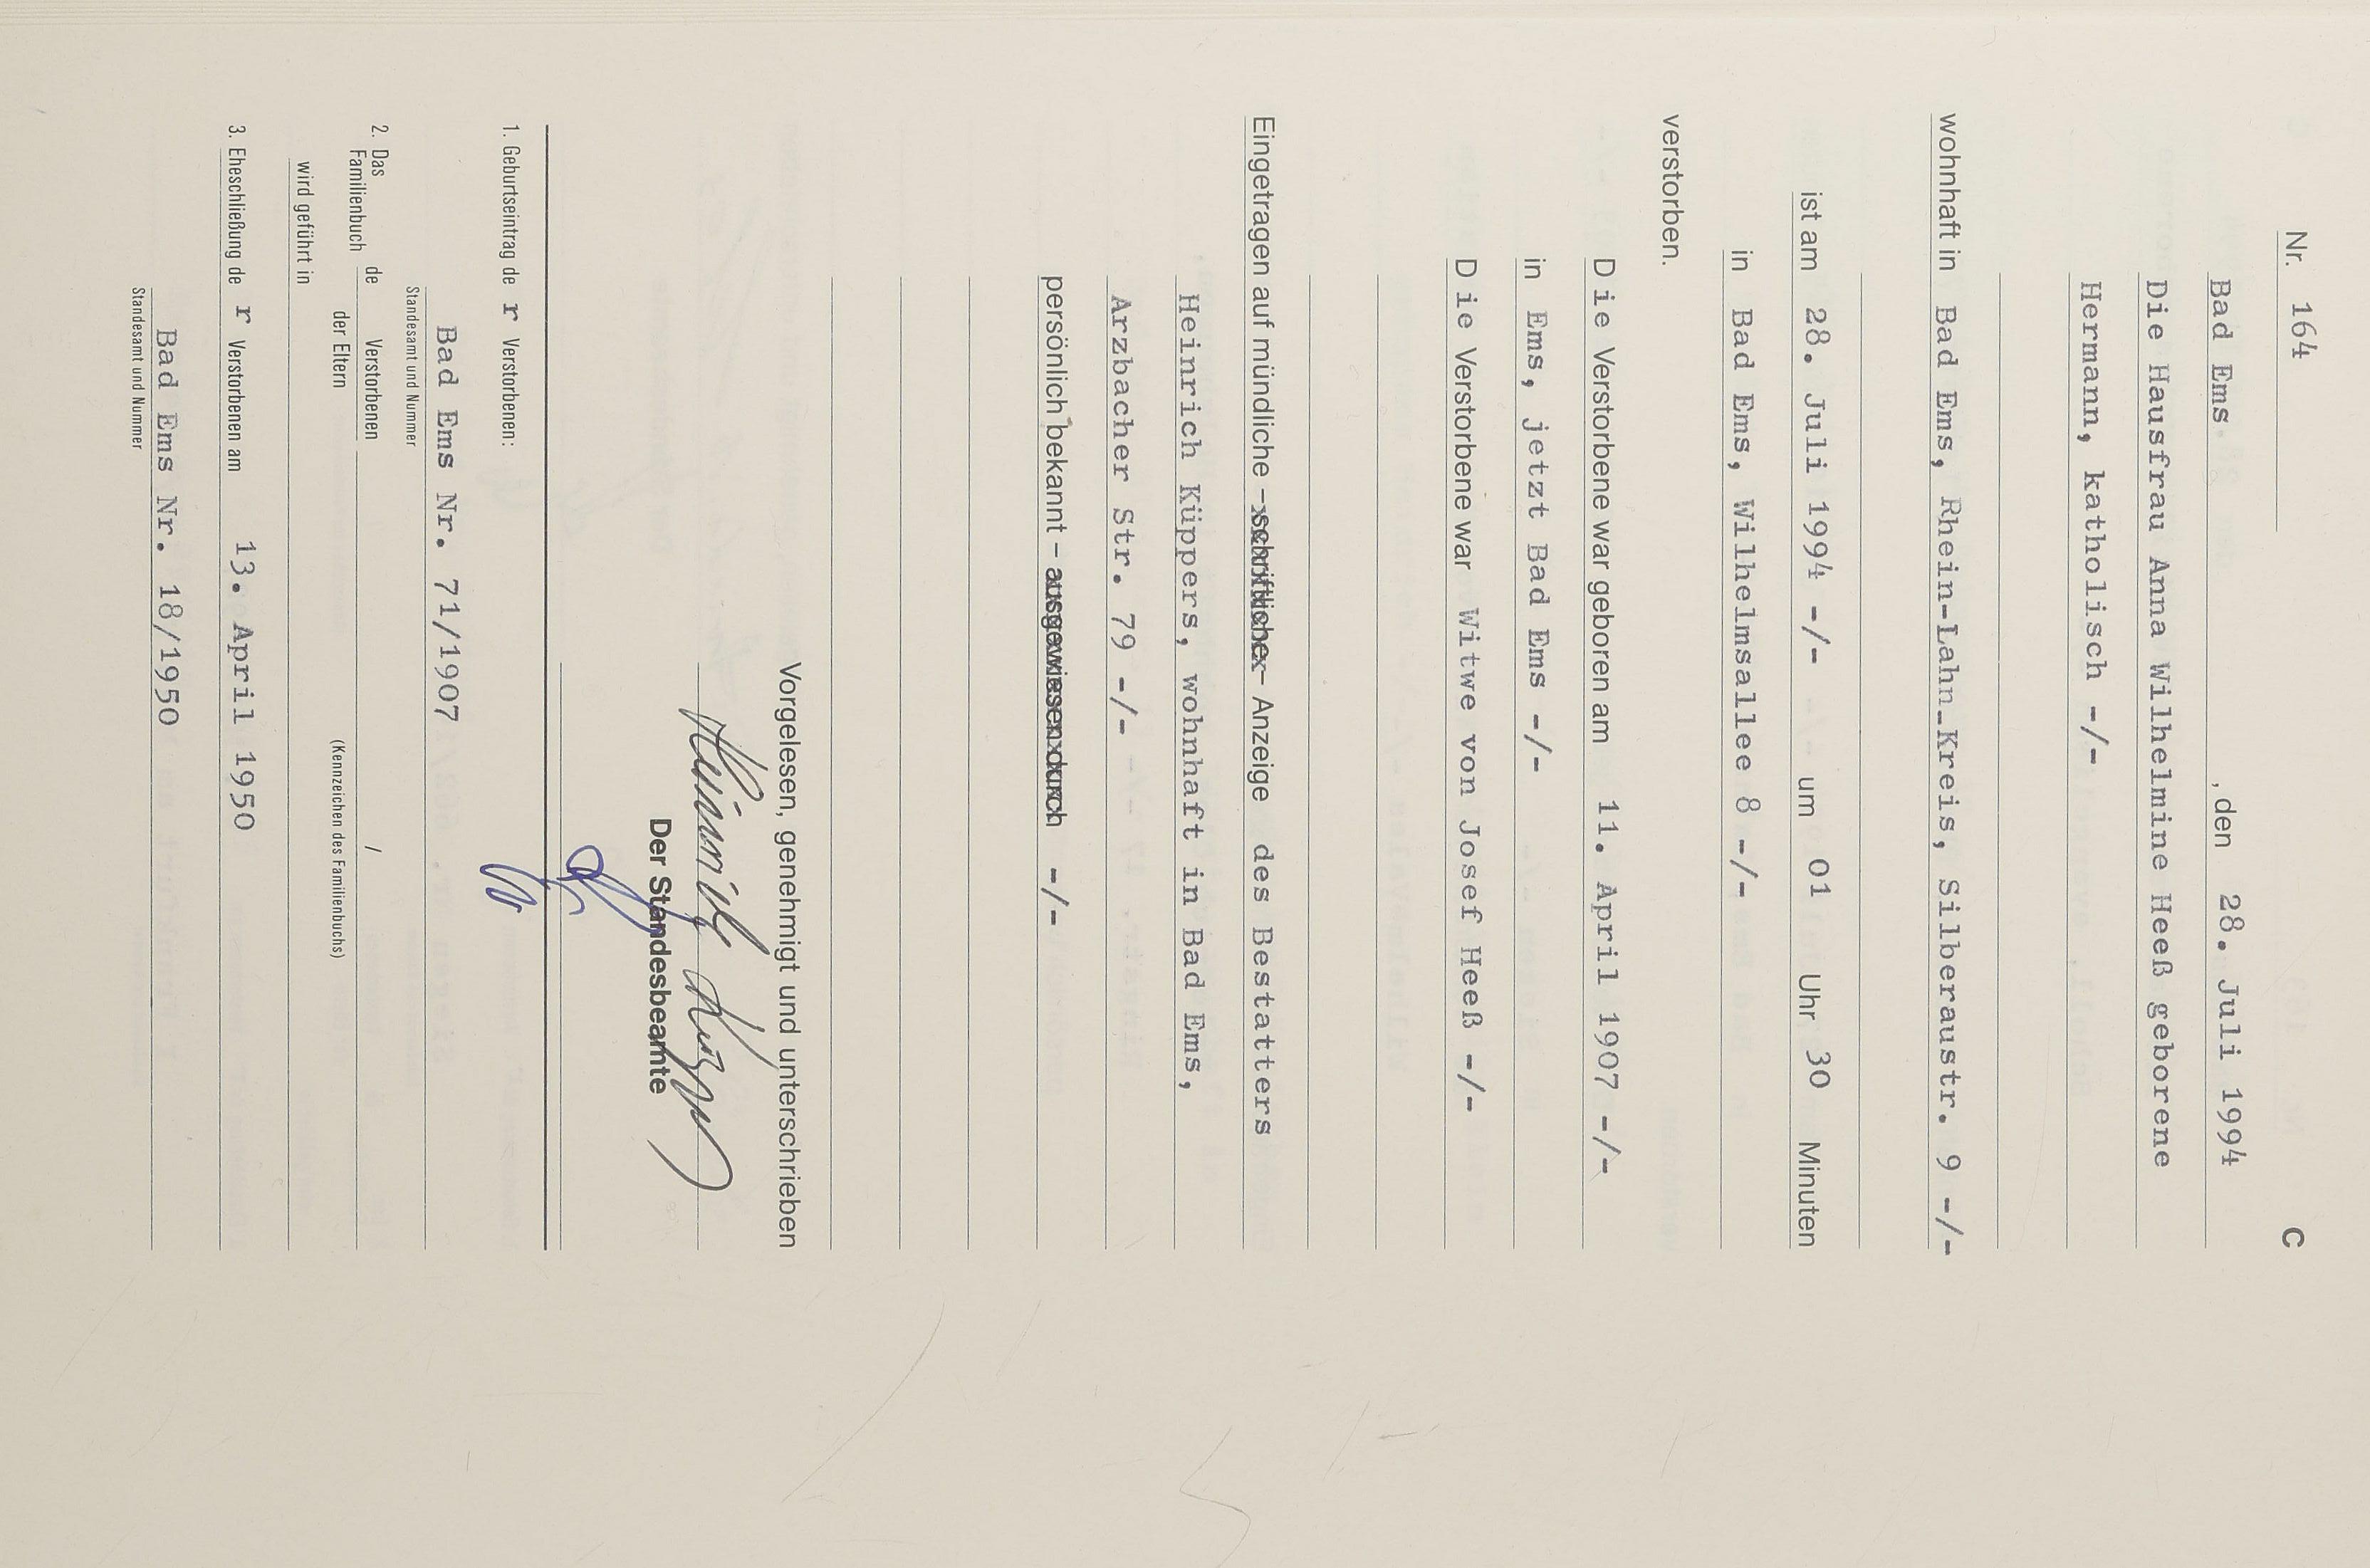 Nr. 164 C
Bad Ems , den 28. Juli 1994
Die Hausfrau Anna Wilhelmine Heeß geborene
Hermann, katholisch -/-
wohnhaft in Bad Ems, Rhein-Lahn-Kreis, Silberaustr. 9 -/-
ist am 28. Juli 1994 -/- um 01 Uhr 30 Minuten
in Bad Ems, Wilhelmsallee 8 -/-
verstorben.
Die Verstorbene war geboren am 11. April 1907 -/-
in Ems, jetzt Bad Ems -/-
Die Verstorbene war Witwe von Josef Heeß -/-
Eingetragen auf mündliche - schriftliche - Anzeige des Bestatters
Heinrich Küppers, wohnhaft in Bad Ems,
Arzbacher Str. 79 -/-
persönlich bekannt - ausgewiesen durch -/-
Vorgelesen, genehmigt und unterschrieben
Heinrich Küppers
Der Standesbeamte
1. Geburtseintrag de r Verstorbenen:
Bad Ems Nr. 71/1907
Standesamt und Nummer
2. Das Familienbuch de Verstorbenen /
der Eltern (Kennzeichen des Familienbuchs)
wird geführt in
3. Eheschließung de r Verstorbenen am 13. April 1950
Bad Ems Nr. 18/1950
Standesamt und Nummer